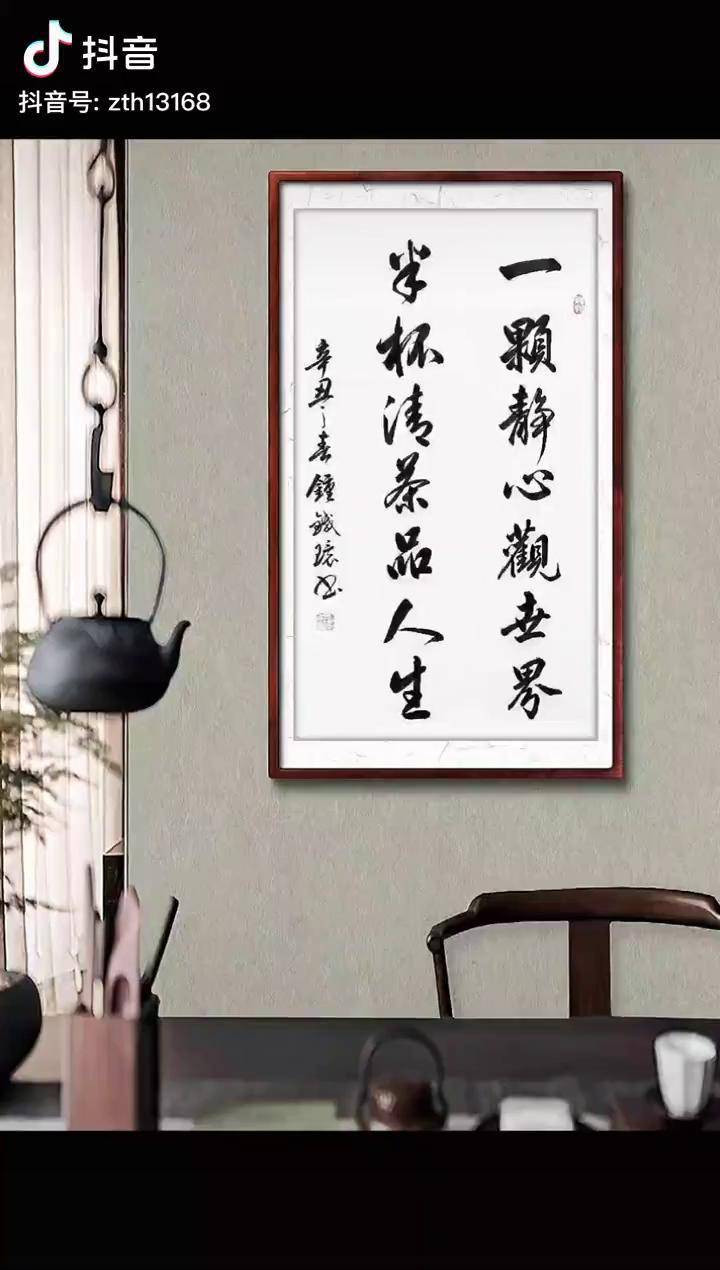 抖音
抖音号: zth13168
一顆靜心觀世界
半杯清茶品人生
辛丑之春鐘鐵環书